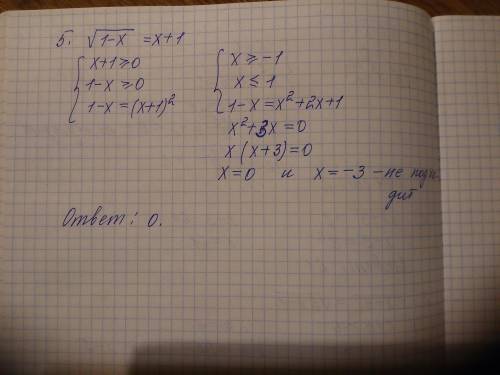 5. √(1-x) = x+1
{ x+1≥0
1-x≥0
1-x=(x+1)²
{ x≥-1
x≤1
1-x=x²+2x+1
x²+3x=0
x(x+3)=0
x=0 и x=-3 - не подхо-
дит
Ответ: 0.